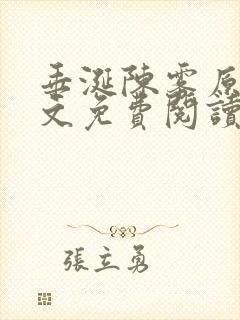 垂涎陳雾原
文免費閱讀
張立勇